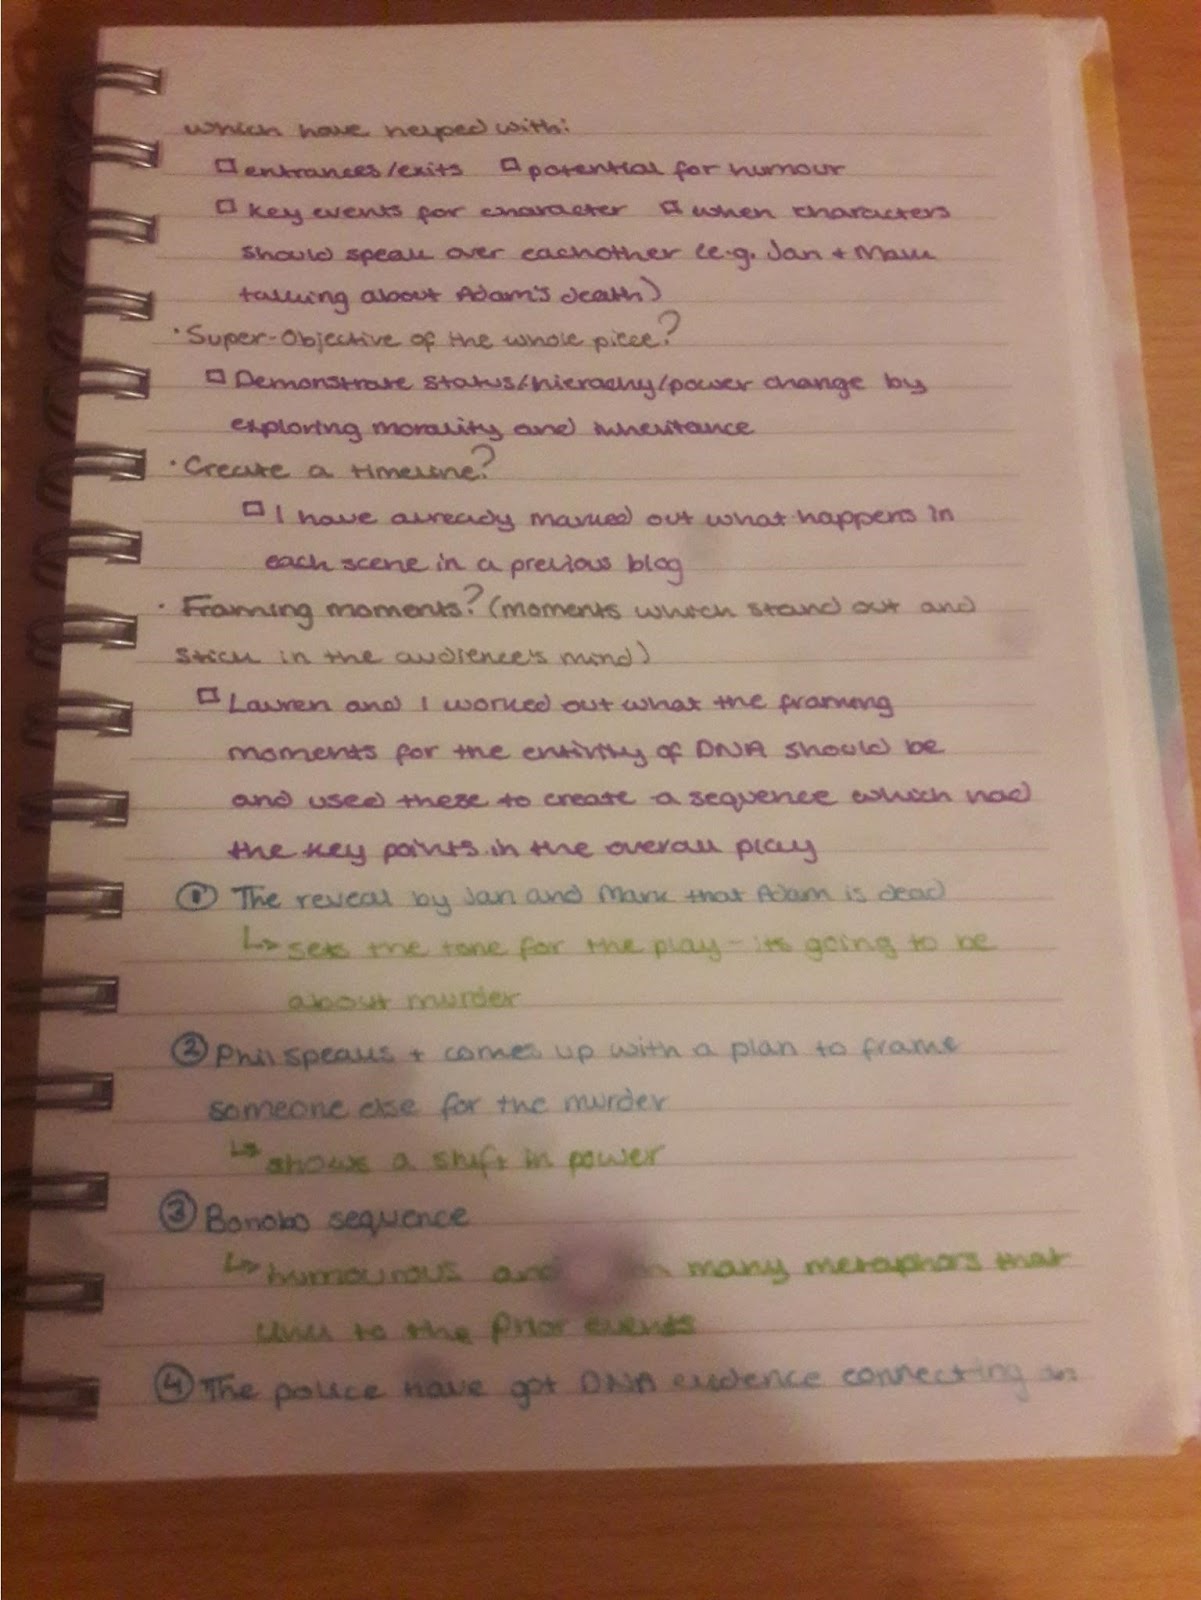 which have helped with:
□ entrances/exits □ potential for humour
□ Key events for character □ when characters
should speak over eachother (e.g. Jan + Mark
talking about Adam's death)
· Super-Objective of the whole piece?
□ Demonstrate status/hierachy/power change by
exploring morality and inheritance
· Create a timeline?
□ I have already marked out what happens in
each scene in a previous blog
· Framing moments? (moments which stand out and
stick in the audience's mind)
□ Lauren and I worked out what the framing
moments for the entirity of DNA should be
and used these to create a sequence which had
the key points in the overall play
① The reveal by Jan and Mark that Adam is dead
↳ sets the tone for the play - its going to be
about murder
② Phil speaks + comes up with a plan to frame
someone else for the murder
↳ shows a shift in power
③ Bonobo sequence
↳ humourous and many metaphors that
link to the prior events
④ The police have got DNA evidence connecting an